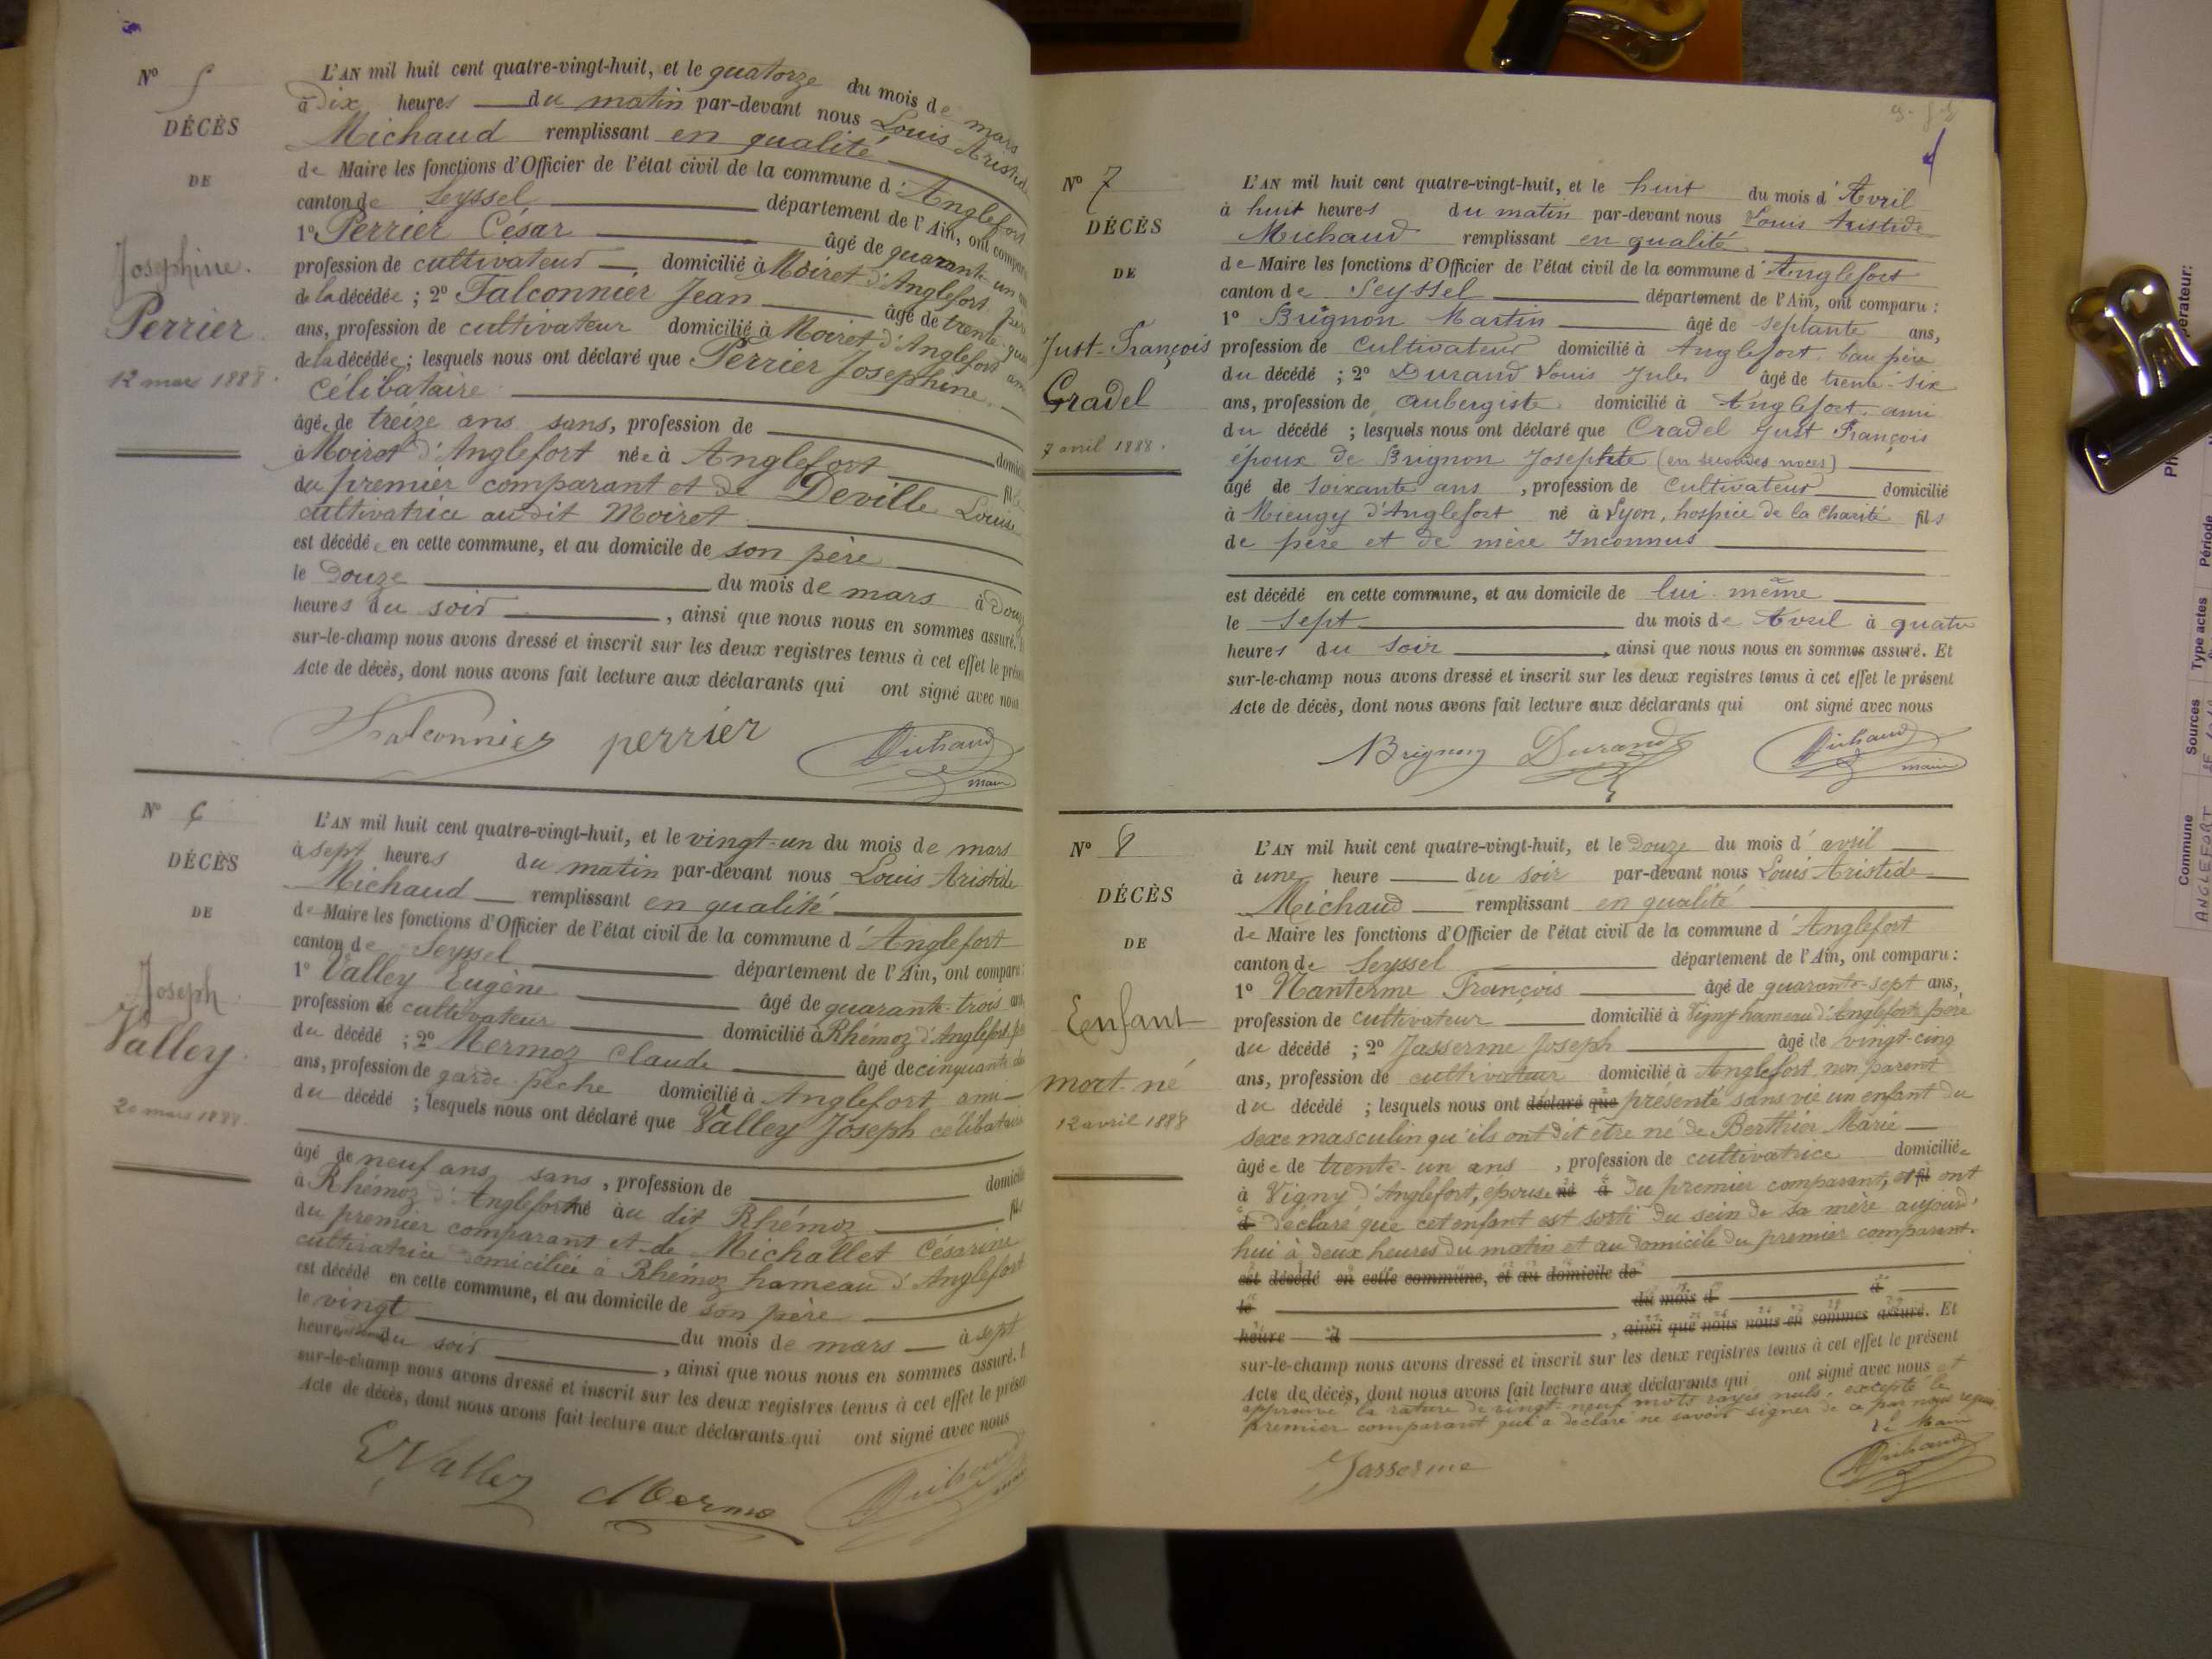 Nº 5
DÉCÈS
DE
Josephine
Perrier
12 mars 1888.
L'AN mil huit cent quatre-vingt-huit, et le quatorze du mois de mars
à Dix heures du matin par-devant nous Louis Aristide
Michaud remplissant en qualité
de Maire les fonctions d'Officier de l'état civil de la commune d'Anglefort
canton de Seyssel département de l'Ain, ont comparu
1º Perrier César âgé de quarante-un
profession de cultivateur domicilié à Moiret d'Anglefort père
de la décédée ; 2º Falconnier Jean âgé de trente
ans, profession de cultivateur domicilié à Moiret d'Anglefort ami
de la décédée ; lesquels nous ont déclaré que Perrier Josephine
célibataire
âgée de treize ans sans, profession de
à Moiret d'Anglefort née à Anglefort
du premier comparant et de Deville Louise
cultivatrice au dit Moiret
est décédée en cette commune, et au domicile de son père
le Douze du mois de mars à
heures du soir , ainsi que nous nous en sommes assuré.
sur-le-champ nous avons dressé et inscrit sur les deux registres tenus à cet effet le
Acte de décès, dont nous avons fait lecture aux déclarants qui ont signé avec nous
Falconnier perrier Michaud
maire
Nº 6
DÉCÈS
DE
Joseph
Valley.
20 mars 1888.
L'AN mil huit cent quatre-vingt-huit, et le vingt-un du mois de mars
à sept heures du matin par-devant nous Louis Aristide
Michaud remplissant en qualité
de Maire les fonctions d'Officier de l'état civil de la commune d'Anglefort
canton de Seyssel département de l'Ain, ont comparu :
1º Valley Eugène âgé de quarante-trois ans
profession de cultivateur domicilié à Rhémoz d'Anglefort
du décédé ; 2º Mermoz Claude âgé de cinquante
ans, profession de garde-pêche domicilié à Anglefort ami
du décédé ; lesquels nous ont déclaré que Valley Joseph célibataire
âgé de neuf ans, sans, profession de
à Rhémoz d'Anglefort né au dit Rhémoz fils
du premier comparant et de Michallet Césarine
cultivatrice domiciliée à Rhémoz hameau d'Anglefort
est décédé en cette commune, et au domicile de son père
le vingt du mois de mars à sept
heures du soir , ainsi que nous nous en sommes assuré.
sur-le-champ nous avons dressé et inscrit sur les deux registres tenus à cet effet le
Acte de décès, dont nous avons fait lecture aux déclarants qui ont signé avec nous
E Valley Mermoz Michaud
Nº 7
DÉCÈS
DE
Just-François
Cradel
7 avril 1888.
L'AN mil huit cent quatre-vingt-huit, et le huit du mois d'Avril
à huit heures du matin par-devant nous Louis Aristide
Michaud remplissant en qualité
de Maire les fonctions d'Officier de l'état civil de la commune d'Anglefort
canton de Seyssel département de l'Ain, ont comparu :
1º Brignon Martin âgé de septante ans,
profession de cultivateur domicilié à Anglefort, bau père
du décédé ; 2º Durand Louis Jules âgé de trente-six
ans, profession de aubergiste domicilié à Anglefort, ami
du décédé ; lesquels nous ont déclaré que Cradel Just François
époux de Brignon Josephte (en secondes noces)
âgé de soixante ans , profession de cultivateur domicilié
à Mieugy d'Anglefort né à Lyon, hospice de la Charité fils
de père et de mère Inconnus
est décédé en cette commune, et au domicile de lui-même
le sept du mois de Avril à quatre
heures du soir , ainsi que nous nous en sommes assuré. Et
sur-le-champ nous avons dressé et inscrit sur les deux registres tenus à cet effet le présent
Acte de décès, dont nous avons fait lecture aux déclarants qui ont signé avec nous
Brignon Durand Michaud
maire
Nº 8
DÉCÈS
DE
Enfant
mort-né
12 avril 1888
L'AN mil huit cent quatre-vingt-huit, et le Douze du mois d'avril
à une heure du soir par-devant nous Louis Aristide
Michaud remplissant en qualité
de Maire les fonctions d'Officier de l'état civil de la commune d'Anglefort
canton de Seyssel département de l'Ain, ont comparu :
1º Nanterme François âgé de quarante-sept ans,
profession de cultivateur domicilié à Vigny hameau d'Anglefort père
du décédé ; 2º Jasserme Joseph âgé de vingt-cinq
ans, profession de cultivateur domicilié à Anglefort non parent
du décédé ; lesquels nous ont déclaré que présenté sans vie un enfant du
sexe masculin qu'ils ont dit être né de Berthier Marie
âgée de trente-un ans , profession de cultivatrice domiciliée
à Vigny d'Anglefort, épouse né à du premier comparant, et fil ont
d déclaré que cet enfant est sorti du sein de sa mère aujourd'
hui à deux heures du matin et au domicile du premier comparant.
est décédé en cette commune, et au domicile de
le du mois d à
heure d , ainsi que nous nous en sommes assuré. Et
sur-le-champ nous avons dressé et inscrit sur les deux registres tenus à cet effet le présent
Acte de décès, dont nous avons fait lecture aux déclarants qui ont signé avec nous et
approuvé la rature de vingt-neuf mots rayés nuls, excepté le
premier comparant qui a déclaré ne savoir signer de ce par nous requis
Le Maire
Jasserme Michaud
Commune Sources Type actes Période
ANGLEFORT